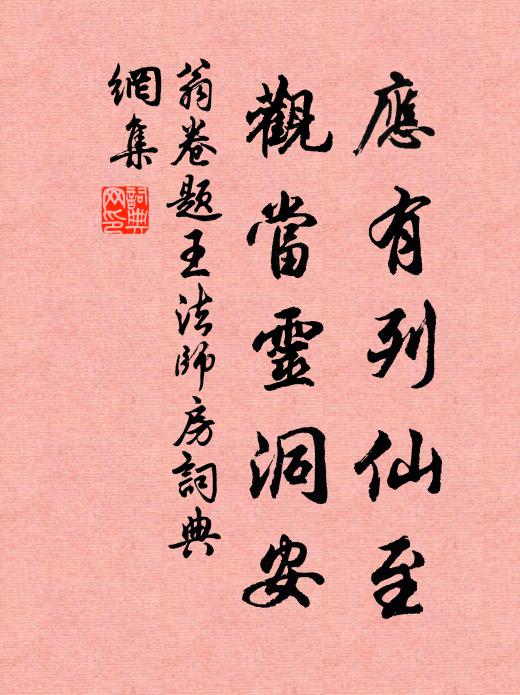 應有列仙至
觀當靈洞安
翁卷題王法師房詞典
網集
詞典網印